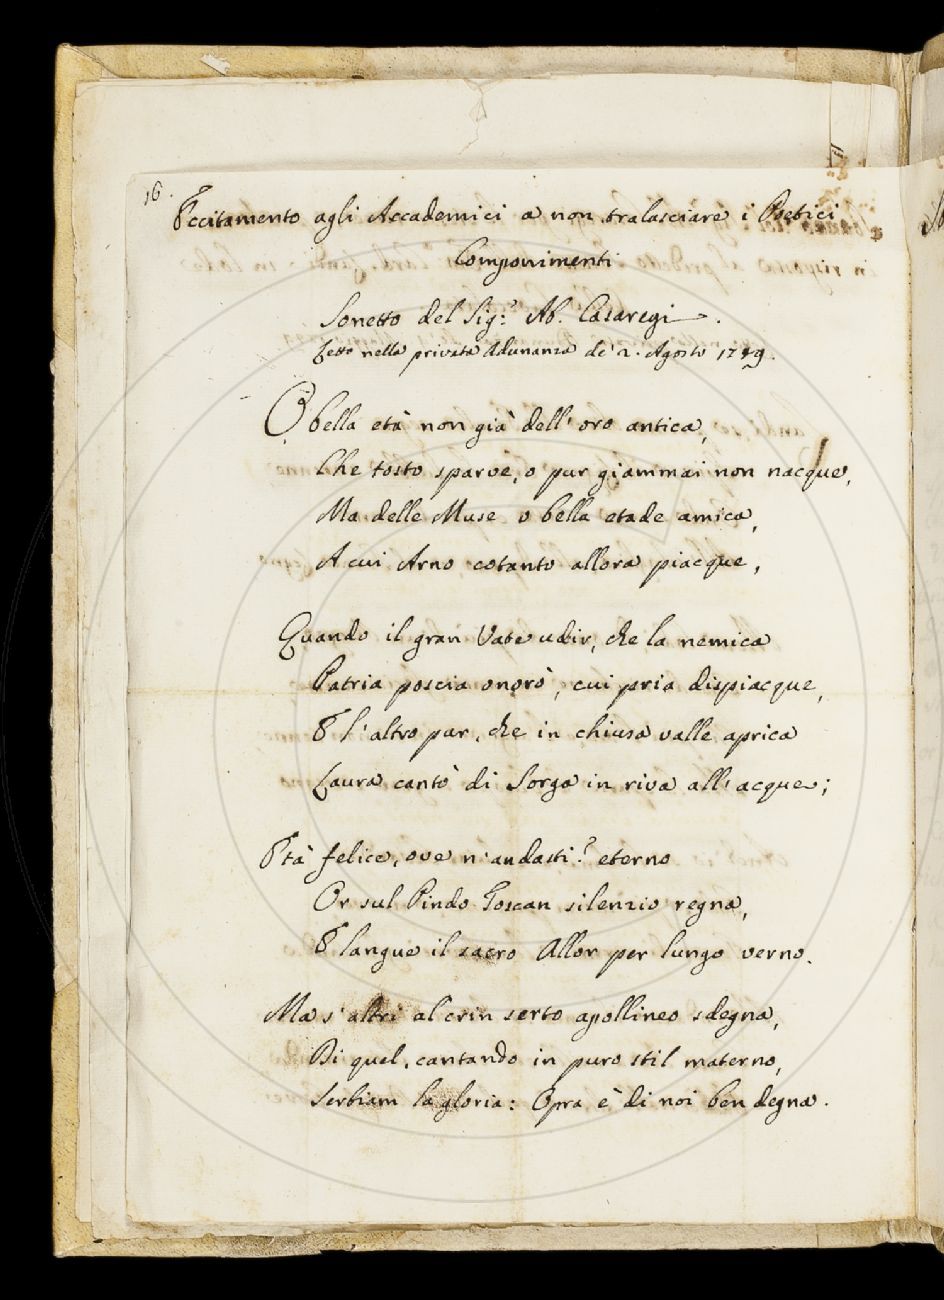 16.
Eccitamento agli Accademici a non tralasciare i Poetici
Componimenti
Sonetto del Sig.r Ab. Casaregi.
Letto nella privata Adunanza de' 2. Agosto 1749.
O bella età non già dell'oro antica,
Che tosto sparve, o pur giammai non nacque,
Ma delle Muse o bella etade amica,
A cui Arno cotanto allora piacque,
Quando il gran Vate udir, che la nemica
Patria poscia onorò, cui pria dispiacque,
E l'altro pur, che in chiusa valle aprica
Laura cantò di Sorga in riva all'acque;
Età felice, ove n'andasti? eterno
Or sul Pindo Toscan silenzio regna,
E langue il sacro Allor per lungo verno.
Ma s'altri al crin serto apollineo sdegna,
Di quel, cantando in puro stil materno,
Serbiam la gloria: Opra è di noi ben degna.